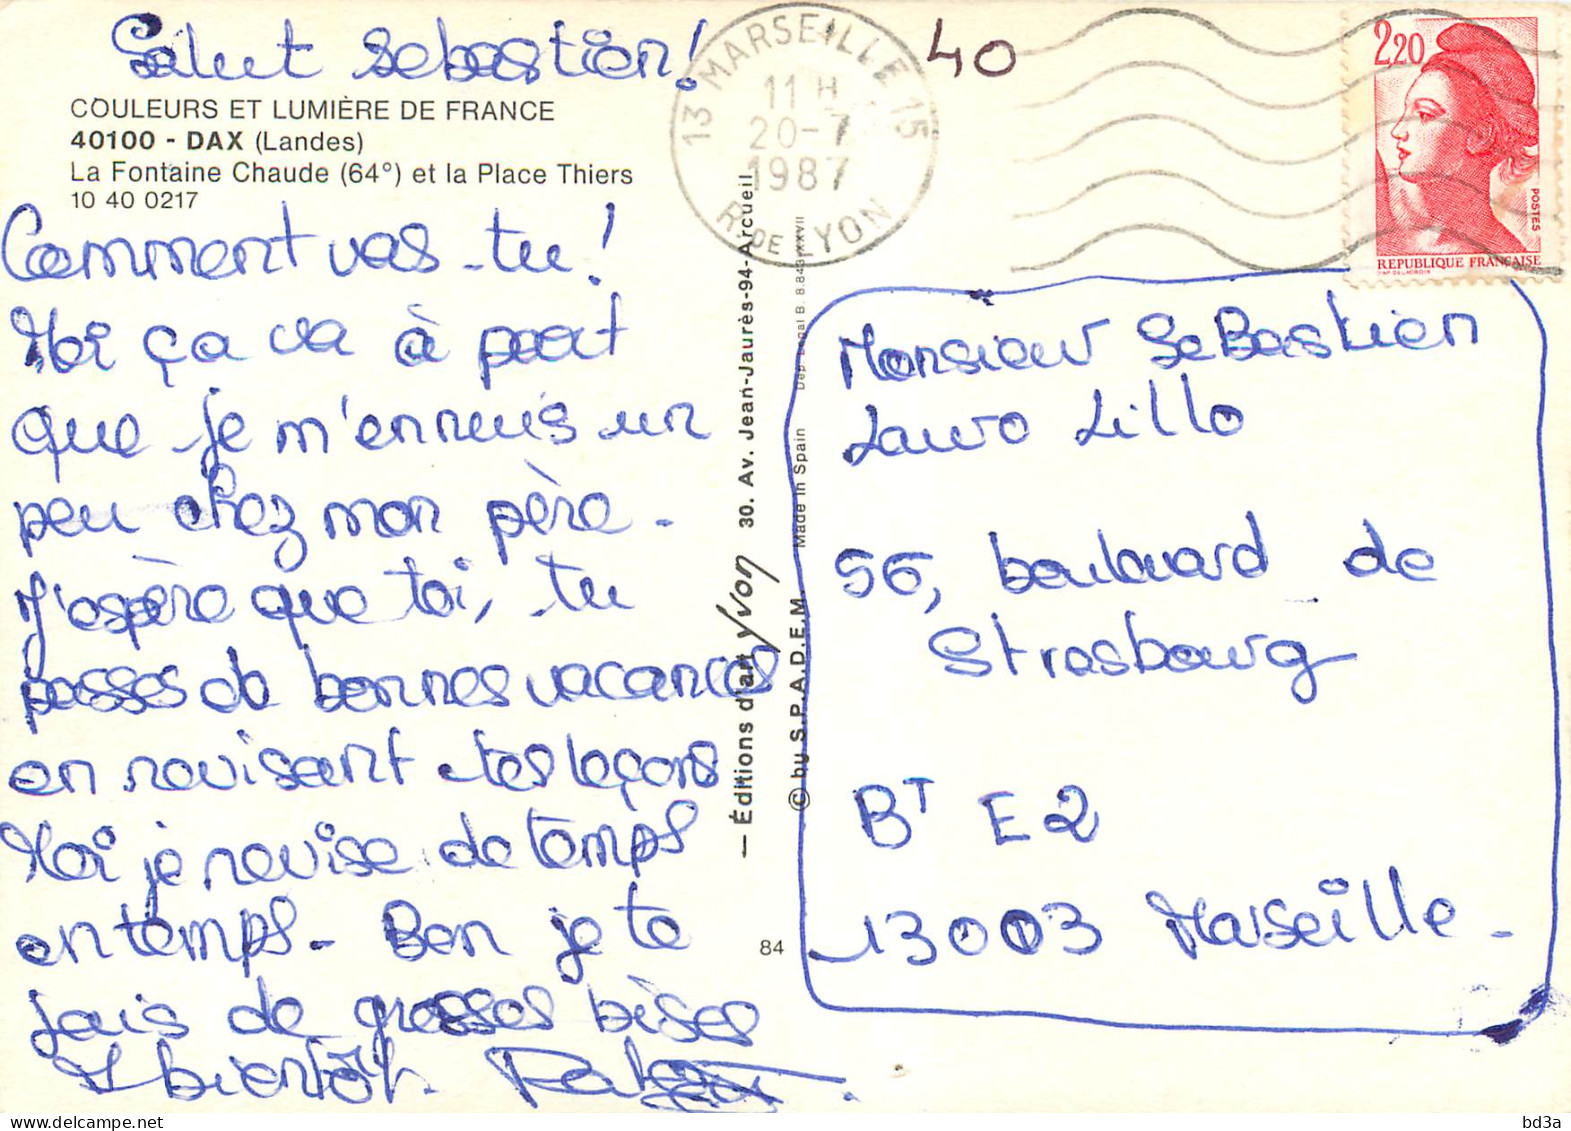 Salut Sebastien!
COULEURS ET LUMIÈRE DE FRANCE
40100 - DAX (Landes)
La Fontaine Chaude (64°) et la Place Thiers
10 40 0217
Comment vas-tu!
Moi ça va à part
que je m'ennuis un
peu chez mon père.
J'espère que toi, tu
passes de bonnes vacances
en revisant tes leçons
Moi je revise de temps
en temps. Bon je te
fais de grosses bises
A bientôt.
— Éditions d'art Yvon 30. Av. Jean-Jaurès-94-Arcueil
© by S.P.A.D.E.M. Made in Spain
84
13 MARSEILLE 15
11 H
20-7
1987
R. DE LYON
40
2,20
POSTES
REPUBLIQUE FRANÇAISE
Monsieur SeBastien
Lauro Lillo
56, boulevard de
Strasbourg
BT E2
13003 Marseille.
bd3a